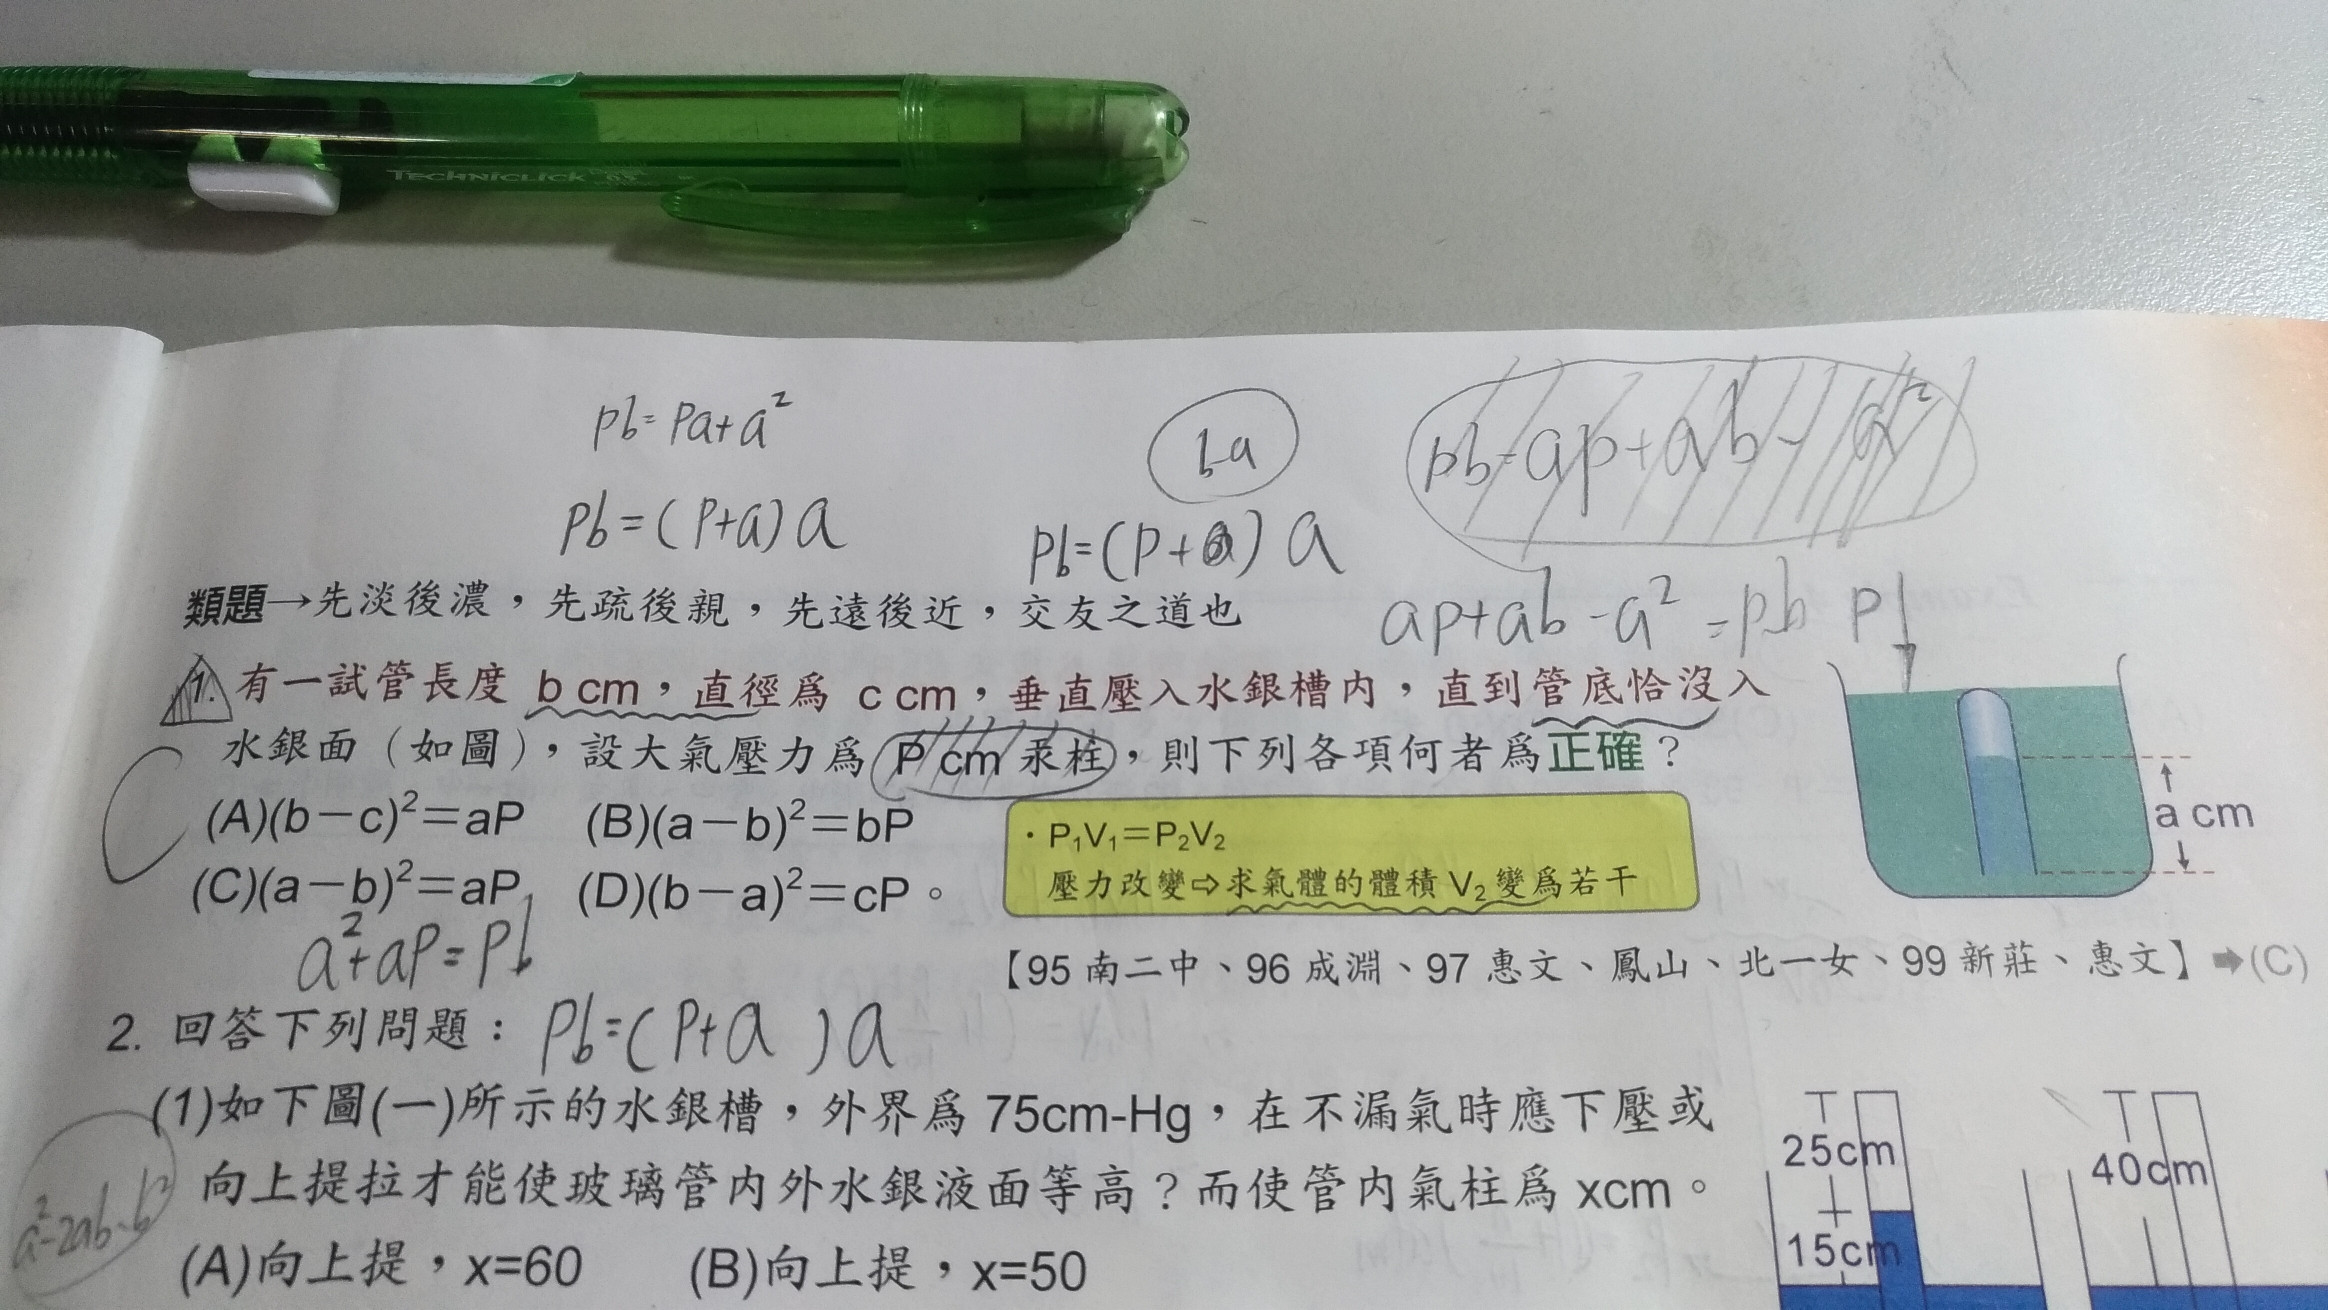 TECHNICLICK
pb=pa+a²
b-a
pb=ap+ab-a²
pb=(p+a)a
pb=(p+a)a
類題→先淡後濃，先疏後親，先遠後近，交友之道也
ap+ab-a²=pb P
1. 有一試管長度 b cm，直徑爲 c cm，垂直壓入水銀槽內，直到管底恰沒入
水銀面（如圖），設大氣壓力爲 P cm 汞柱，則下列各項何者爲正確？
(A)(b－c)²＝aP (B)(a－b)²＝bP
(C)(a－b)²＝aP (D)(b－a)²＝cP。
・P₁V₁＝P₂V₂
壓力改變⇨求氣體的體積 V₂ 變爲若干
a cm
a²+ap=pb
【95 南二中、96 成淵、97 惠文、鳳山、北一女、99 新莊、惠文】➡(C)
2. 回答下列問題：
pb=(p+a)a
(1)如下圖(一)所示的水銀槽，外界爲 75cm-Hg，在不漏氣時應下壓或
向上提拉才能使玻璃管內外水銀液面等高？而使管內氣柱爲 xcm。
(A)向上提，x=60 (B)向上提，x=50
25cm
15cm
40cm
a²-2ab-b²